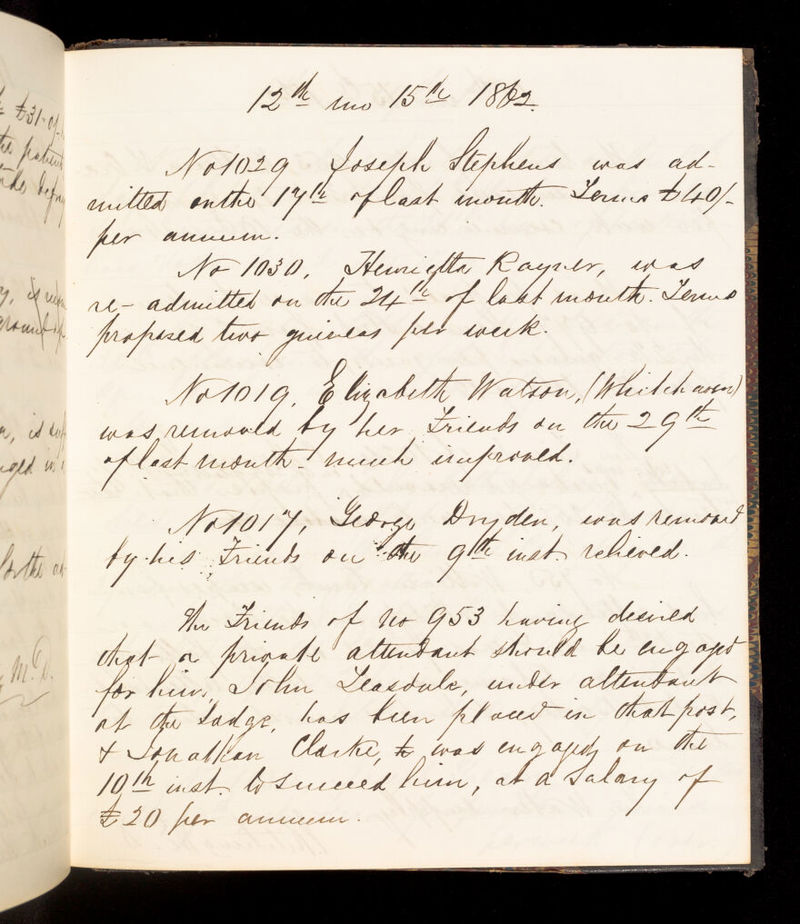 12th mo 15th 1862.
No 1029 Joseph Stephens was ad-
mitted on the 17th of last month. Terms £40/-
per annum.
No 1030, Henrietta Rayner, was
re-admitted on the 24th of last month. Terms
proposed two guineas per week.
No 1019, Elizabeth Watson, (Whitehaven)
was removed by her Friends on the 29th
of last month - much improved.
No 1017, George Dryden, was removed
by his Friends on the 9th inst. relieved.
The Friends of No 953 having desired
that a private attendant should be engaged
for him, John Teasdale, under attendant
at the Lodge, has been placed in that post,
& Jonathan Clarke, was engaged, on the
10th inst. to succeed him, at a Salary of
£20 per annum.
£31-0/-
the patient
M.D.